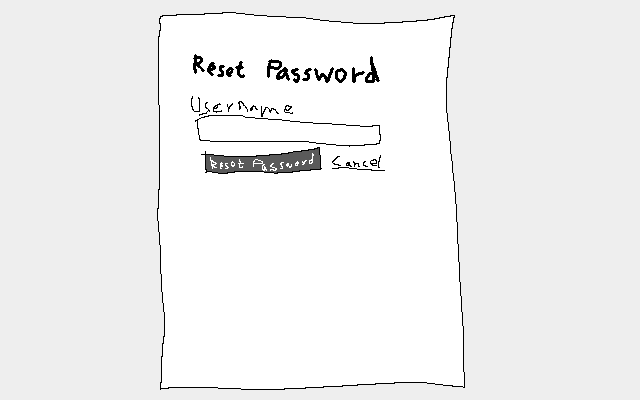 Reset Password
Username
Reset Password Cancel